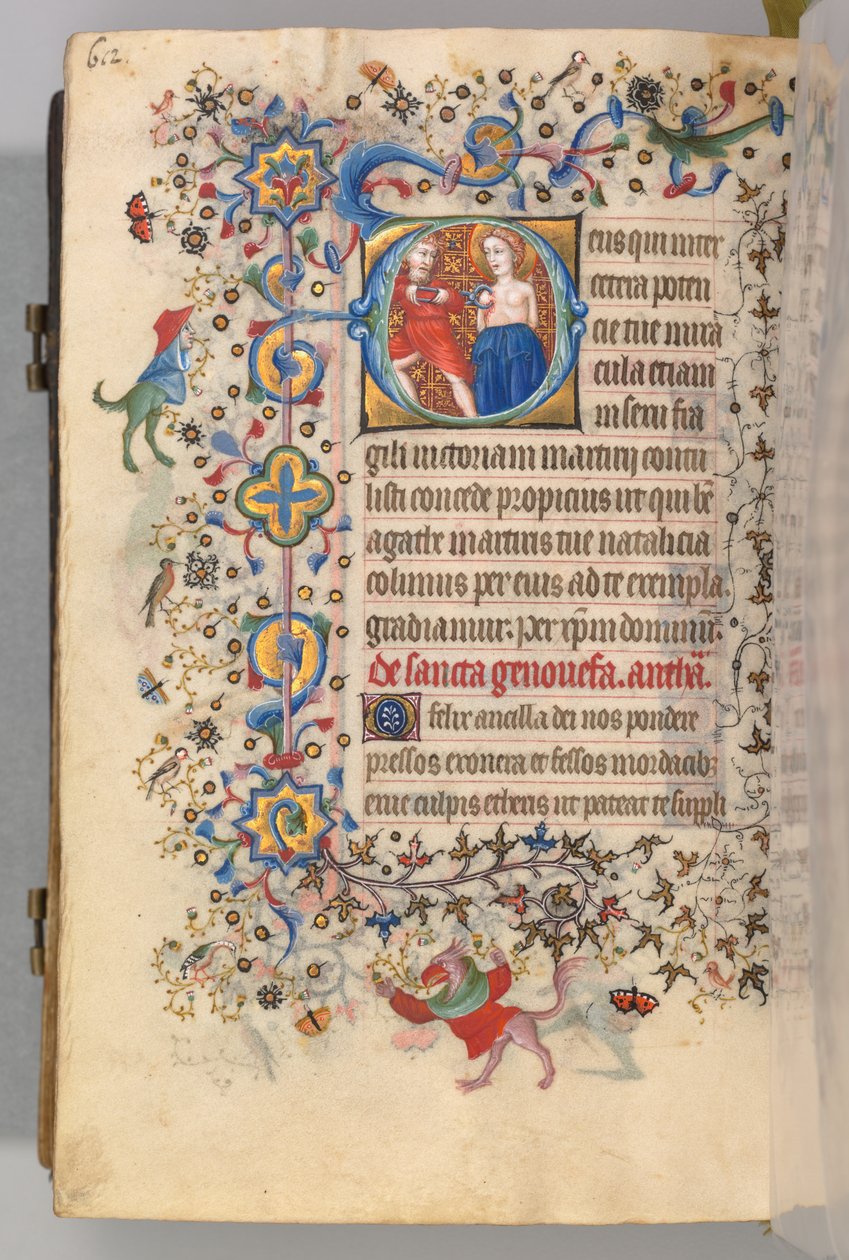 612.
Deus qui inter
cetera poten
cie tue mira
cula etiam
in sexu fra
gili victoriam martirij contu
listi concede propicius ut qui bẽ
agathe martiris tue natalicia
colimus per eius ad te exempla
gradiamur. Per xp̃m dominũ.
de sancta genouefa. anthã.
O felix ancilla dei nos pondere
pressos exonera et fessos mordacibꝫ
erue culpis etheris ut pateat te suppli